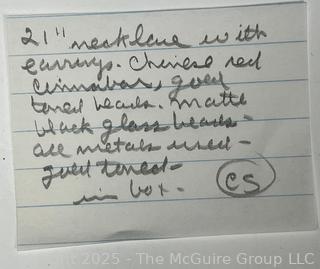 21" necklace with
earrings. Chinese red
Cinnabar, gold
toned beads. Matte
black glass beads -
all metals used -
gold toned -
in box. CS
© 2025 - The McGuire Group LLC